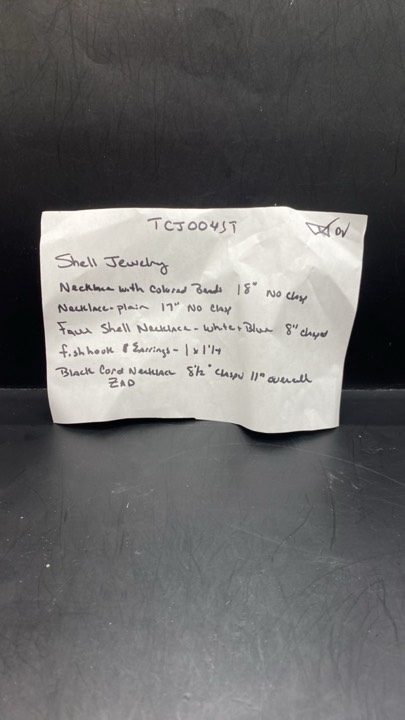 TCJ004ST
OV
Shell Jewelry
Necklace with Colored Beads 18" No Clasp
Necklace - plain 17" No Clasp
Faux Shell Necklace - White + Blue 8" clasped
fishhook Earrings - 1 x 1 1/4
Black Cord Necklace 8 1/2" Clasped 11" overall
ZAD